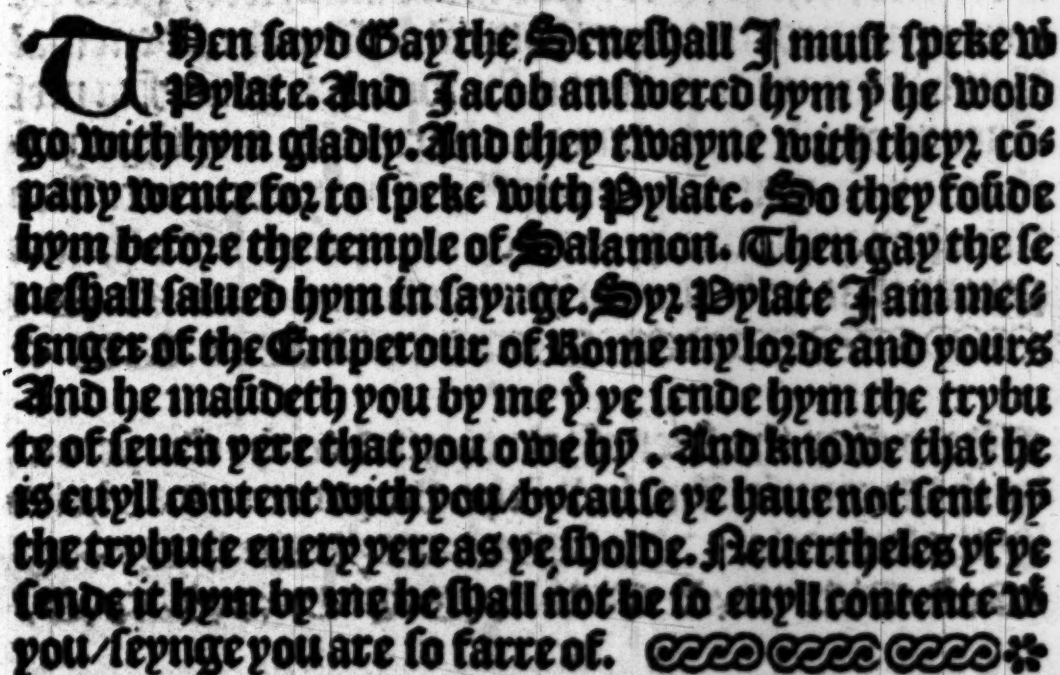 THen ſayd Gay the Seneſhall I muſt ſpeke wͭ
Pylate. And Jacob anſwered hym yͭ he wold
go with hym gladly. And they twayne with theyꝛ cō⸗
pany wente foꝛ to ſpeke with Pylate. So they foūde
hym befoꝛe the temple of Salamon. Then gay the ſe
neſhall ſalued hym in ſaynge. Syꝛ Pylate I am meſ⸗
ſenger of the Emperour of Rome my loꝛde and yours
And he maūdeth you by me yͭ ye ſende hym the trybu
te of ſeuen yere that you owe hȳ. And knowe that he
is euyll content with you/bycauſe ye haue not ſent hȳ
the trybute euery yere as ye ſholde. Neuertheles yf ye
ſende it hym by me he ſhall not be ſo euyll contente wͭ
you/ſeynge you are ſo farre of.